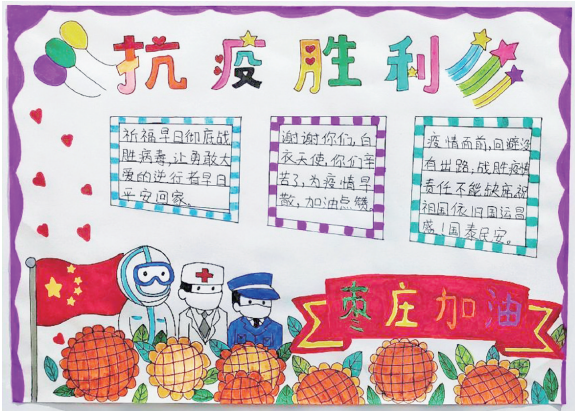 抗疫胜利
祈福早日彻底战
胜病毒,让勇敢大
爱的逆行者早日
平安回家。
谢谢你们,白
衣天使,你们辛
苦了,为疫情早
散,加油点赞。
疫情面前,回避没
有出路,战胜疫情
责任不能缺席。祝
祖国依旧国运昌
盛!国泰民安。
枣庄加油